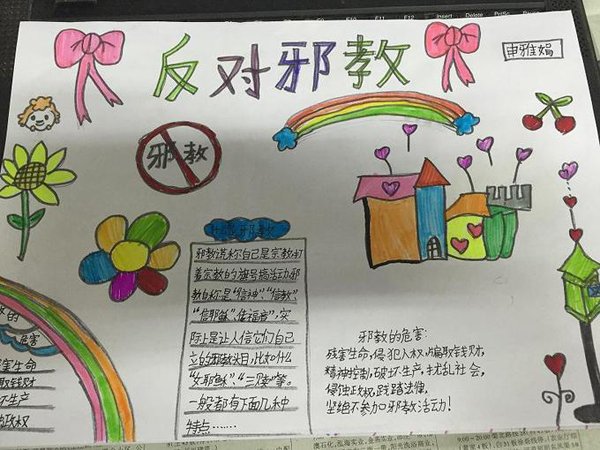 反对邪教
申雅娟
邪教
什么是邪教
邪教说称自己是宗教,打
着宗教的旗号搞活动.邪
教自称是“信神”、“信教”
“信耶稣”、“信福音”,实
际上是让人信它们自己
立的邪教教主,比如什么
“女耶稣”、“三赎”等。
一般都有下面几种
特点……
邪教的危害:
残害生命,侵犯人权,骗取钱财,
精神控制,破坏生产,扰乱社会,
侵蚀政权,践踏法律,
坚绝不参加邪教活动!
教的
危害
害生命
取钱财
坏生产
政权